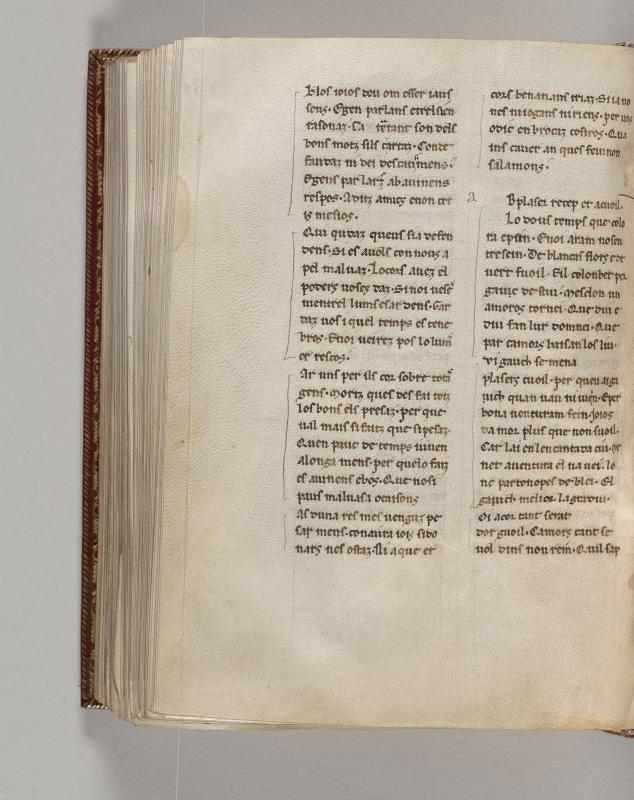 blos ioios dou om esser iaus
sens. Egen parlans
rasonaz. Ca tātant son dels
bons motz fils cartaz. Conte
faizdaz ni dei descauzimens.
Egens parlarz abauinens
respos. Aditz amics enon cre
is mesios.
Qui quidaz queus sia defen
dens. Si es auols con nous a
pel maluaz. Locors auez el
poders uoses daz. Si noi uese
menrel lums esardens. Gar
daz uos i quel temps es tene
bros. Enoi ueirez pos lolum
er rescos.
Ar uns per ils cor sobre totas
gens. Mortz ques des fai totz
los bons els presaz. per que
ual mais si faitz que si pesaz.
Quen pauc de temps uiuen
alonga mens. per quelo faz
es auinens ebos. Que nosi
paus maluasa ocaisons
As duna res mes uenguz pe
sar mens. conaura ioi si do
nars nes ostaz. Ni aque er
cors benanans triaz. Si ia no
nes niogans niriens. per uos
odic en brocaz cosiros. Qua
ins cauer an ques feu non
salamons.
A
B plaser recep et acuoil.
Lo dous temps que colo
ra epein. Enoi aram nosen
tresein. De blancas flors e de
uert fuoil. Eil colonbet per
gauic de stiu. Mesclon un
amoros tornei. Que dui e
dui fan lur domnei. Que
par camors baisan los lui.
Vi gauch se mena
plasers cuoil. per queu aiga
iuch quan uau ni uien. Eper
bona uenturam fein. Joios
da mor plus que non suoil.
Car lai enlencantada ciu. ge
net auentura el na uei. lo
nc partonopes de blei. El
gauich melior la graciu.
Oi acor tant serat
dor guoil. Camors tant se
uol dins non rein. Quil sap